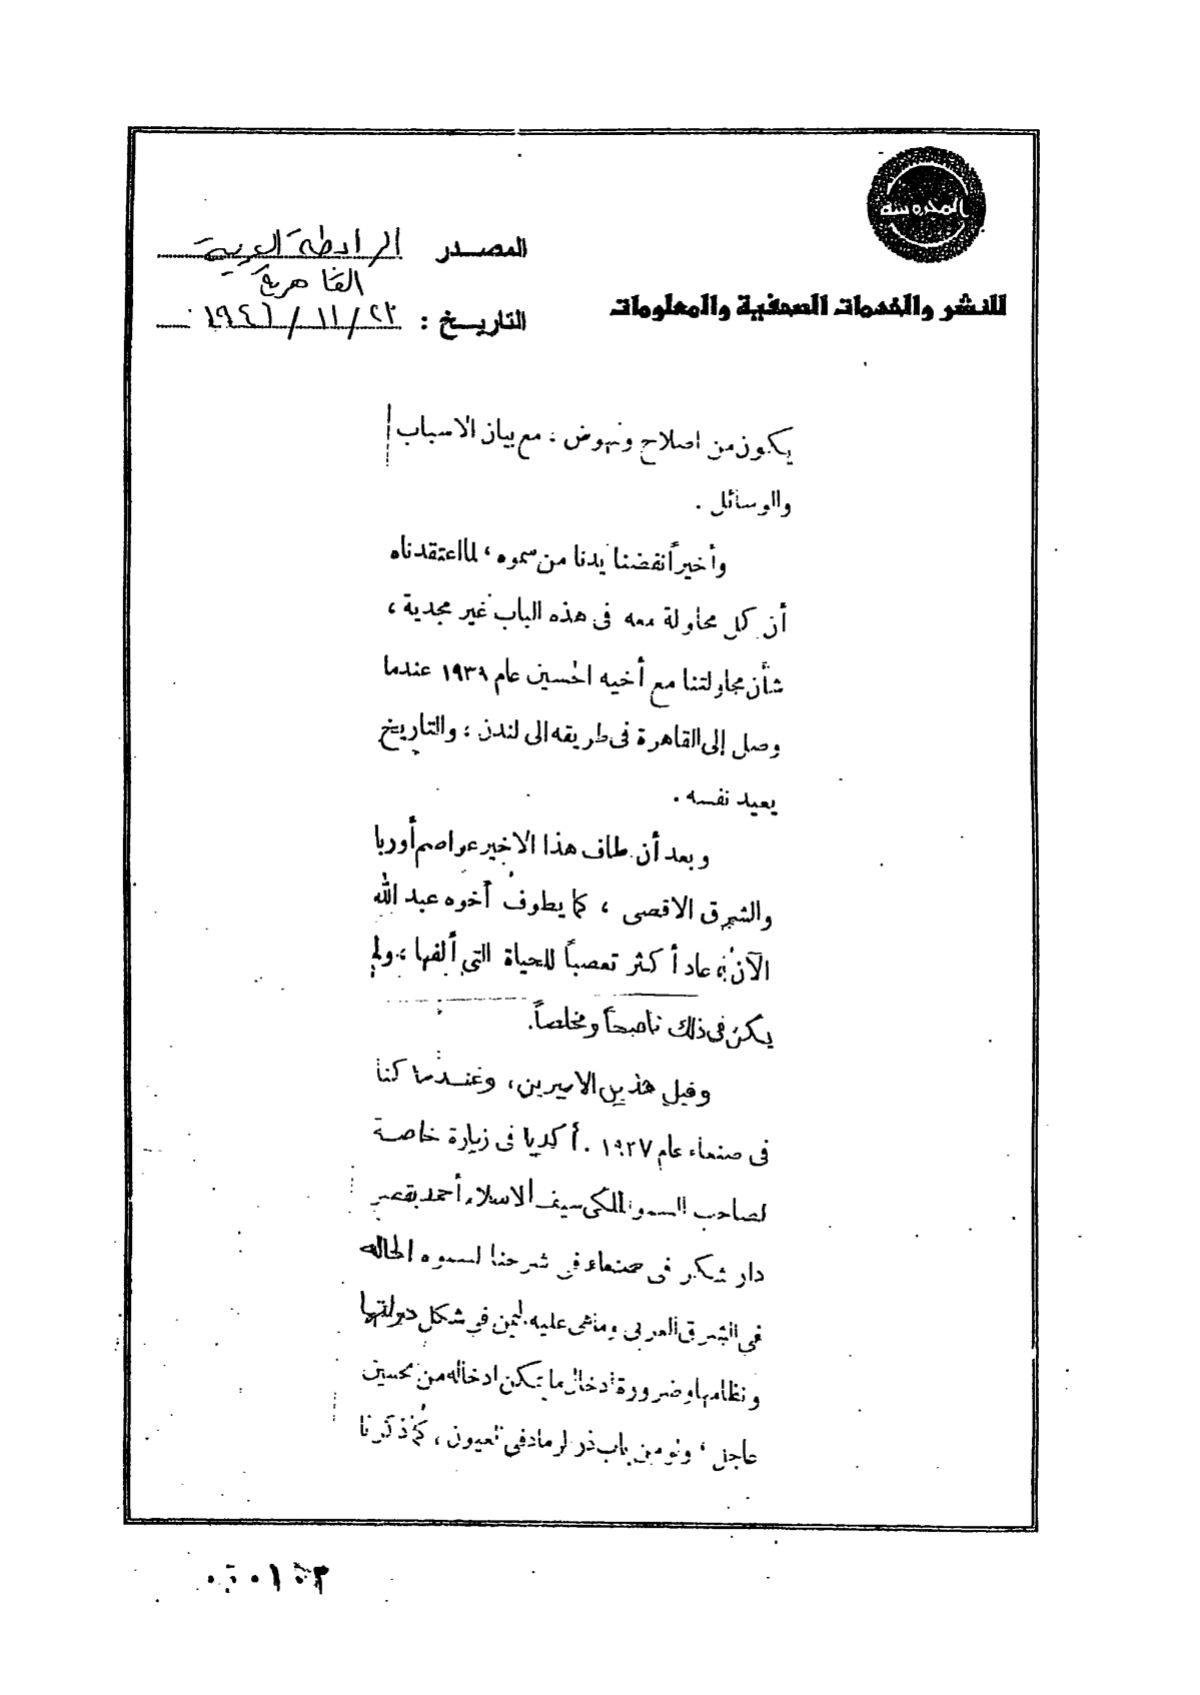 المحروسة
للنشر والخدمات الصحفية والمعلومات
المصدر الرابطة العربية
القاهرية
التاريخ : ٢٣/ ١١/ ١٩٤٦
يكون من اصلاح ونهوض ، مع بيان الاسباب
والوسائل .
وأخيراً نفضنا يدنا من سموه ، لما اعتقدناه
أن كل محاولة معه فى هذه الباب غير مجدية ،
شأن محاولتنا مع أخيه الحسين عام ١٩٣٩ عندما
وصل إلى القاهرة فى طريقه الى لندن ، والتاريخ
يعيد نفسه .
وبعد أن طاف هذا الاخير عواصم أوربا
والشرق الاقصى ، كما يطوف أخوه عبد الله
الآن ، عاد أكثر تعصباً للحياة التى ألفها ، ولم
يكن فى ذلك ناصحاً ومخلصاً .
وقبل هذين الاميرين ، وعندما كنا
فى صنعاء عام ١٩٢٧ . أكدنا فى زيارة خاصة
لصاحب السمو الملكى سيف الاسلام أحمد بقصر
دار شكر فى صنعاء فى شرحنا لسموه الحالة
فى الشرق العربى وما هى عليه اليمن فى شكل دولتها
ونظامها وضرورة ادخال ما يمكن ادخاله من تحسين
عاجل ، ولو من باب ذر الرماد فى العيون ، كما ذكرنا